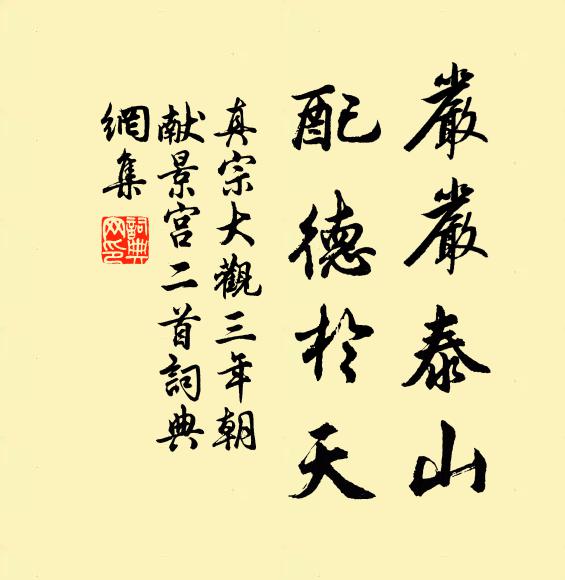 嚴嚴泰山
配德於天
真宗大觀三年朝
献景宫二首詞典
網集
詞典
网印